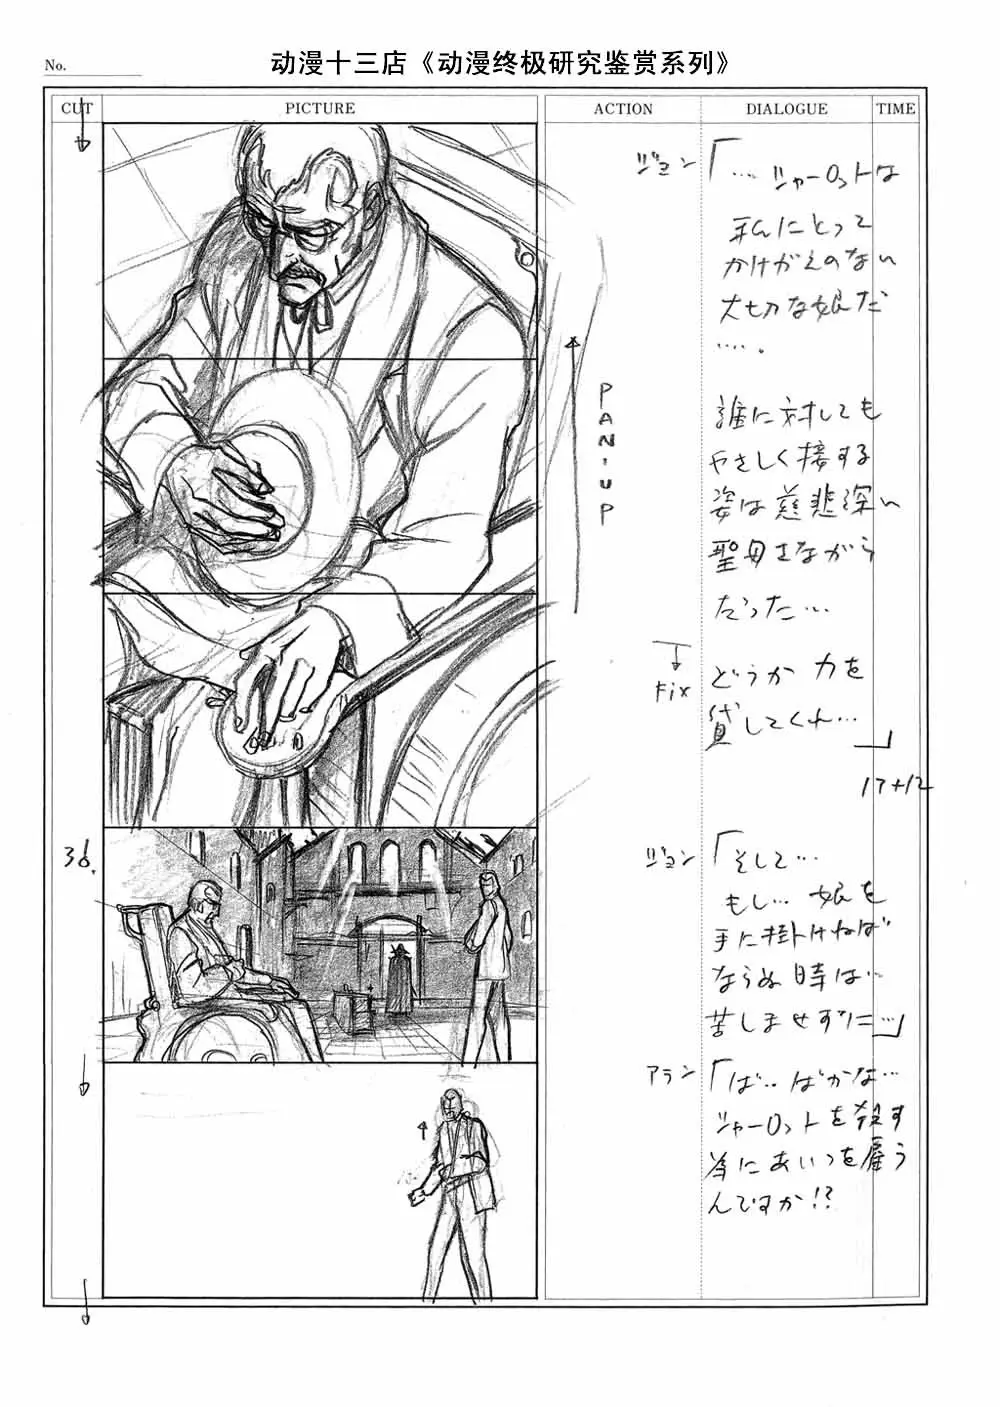 No.
动漫十三店《动漫终极研究鉴赏系列》
CUT
PICTURE
ACTION
DIALOGUE
TIME
ジョン
「… シャーロットは
私にとって
かけがえのない
大切な娘だ
….
誰に対しても
やさしく接する
姿は慈悲深い
聖母さながら
だった…
PAN・UP
Fix
どうか 力を
貸してくれ…
」
17+12
36.
ジョン
「そして…
もし… 娘を
手に掛けねば
ならぬ 時は…
苦しませずに…」
アラン
「ば… ばかな…
シャーロットを殺す
為にあいつを雇う
んですか!?